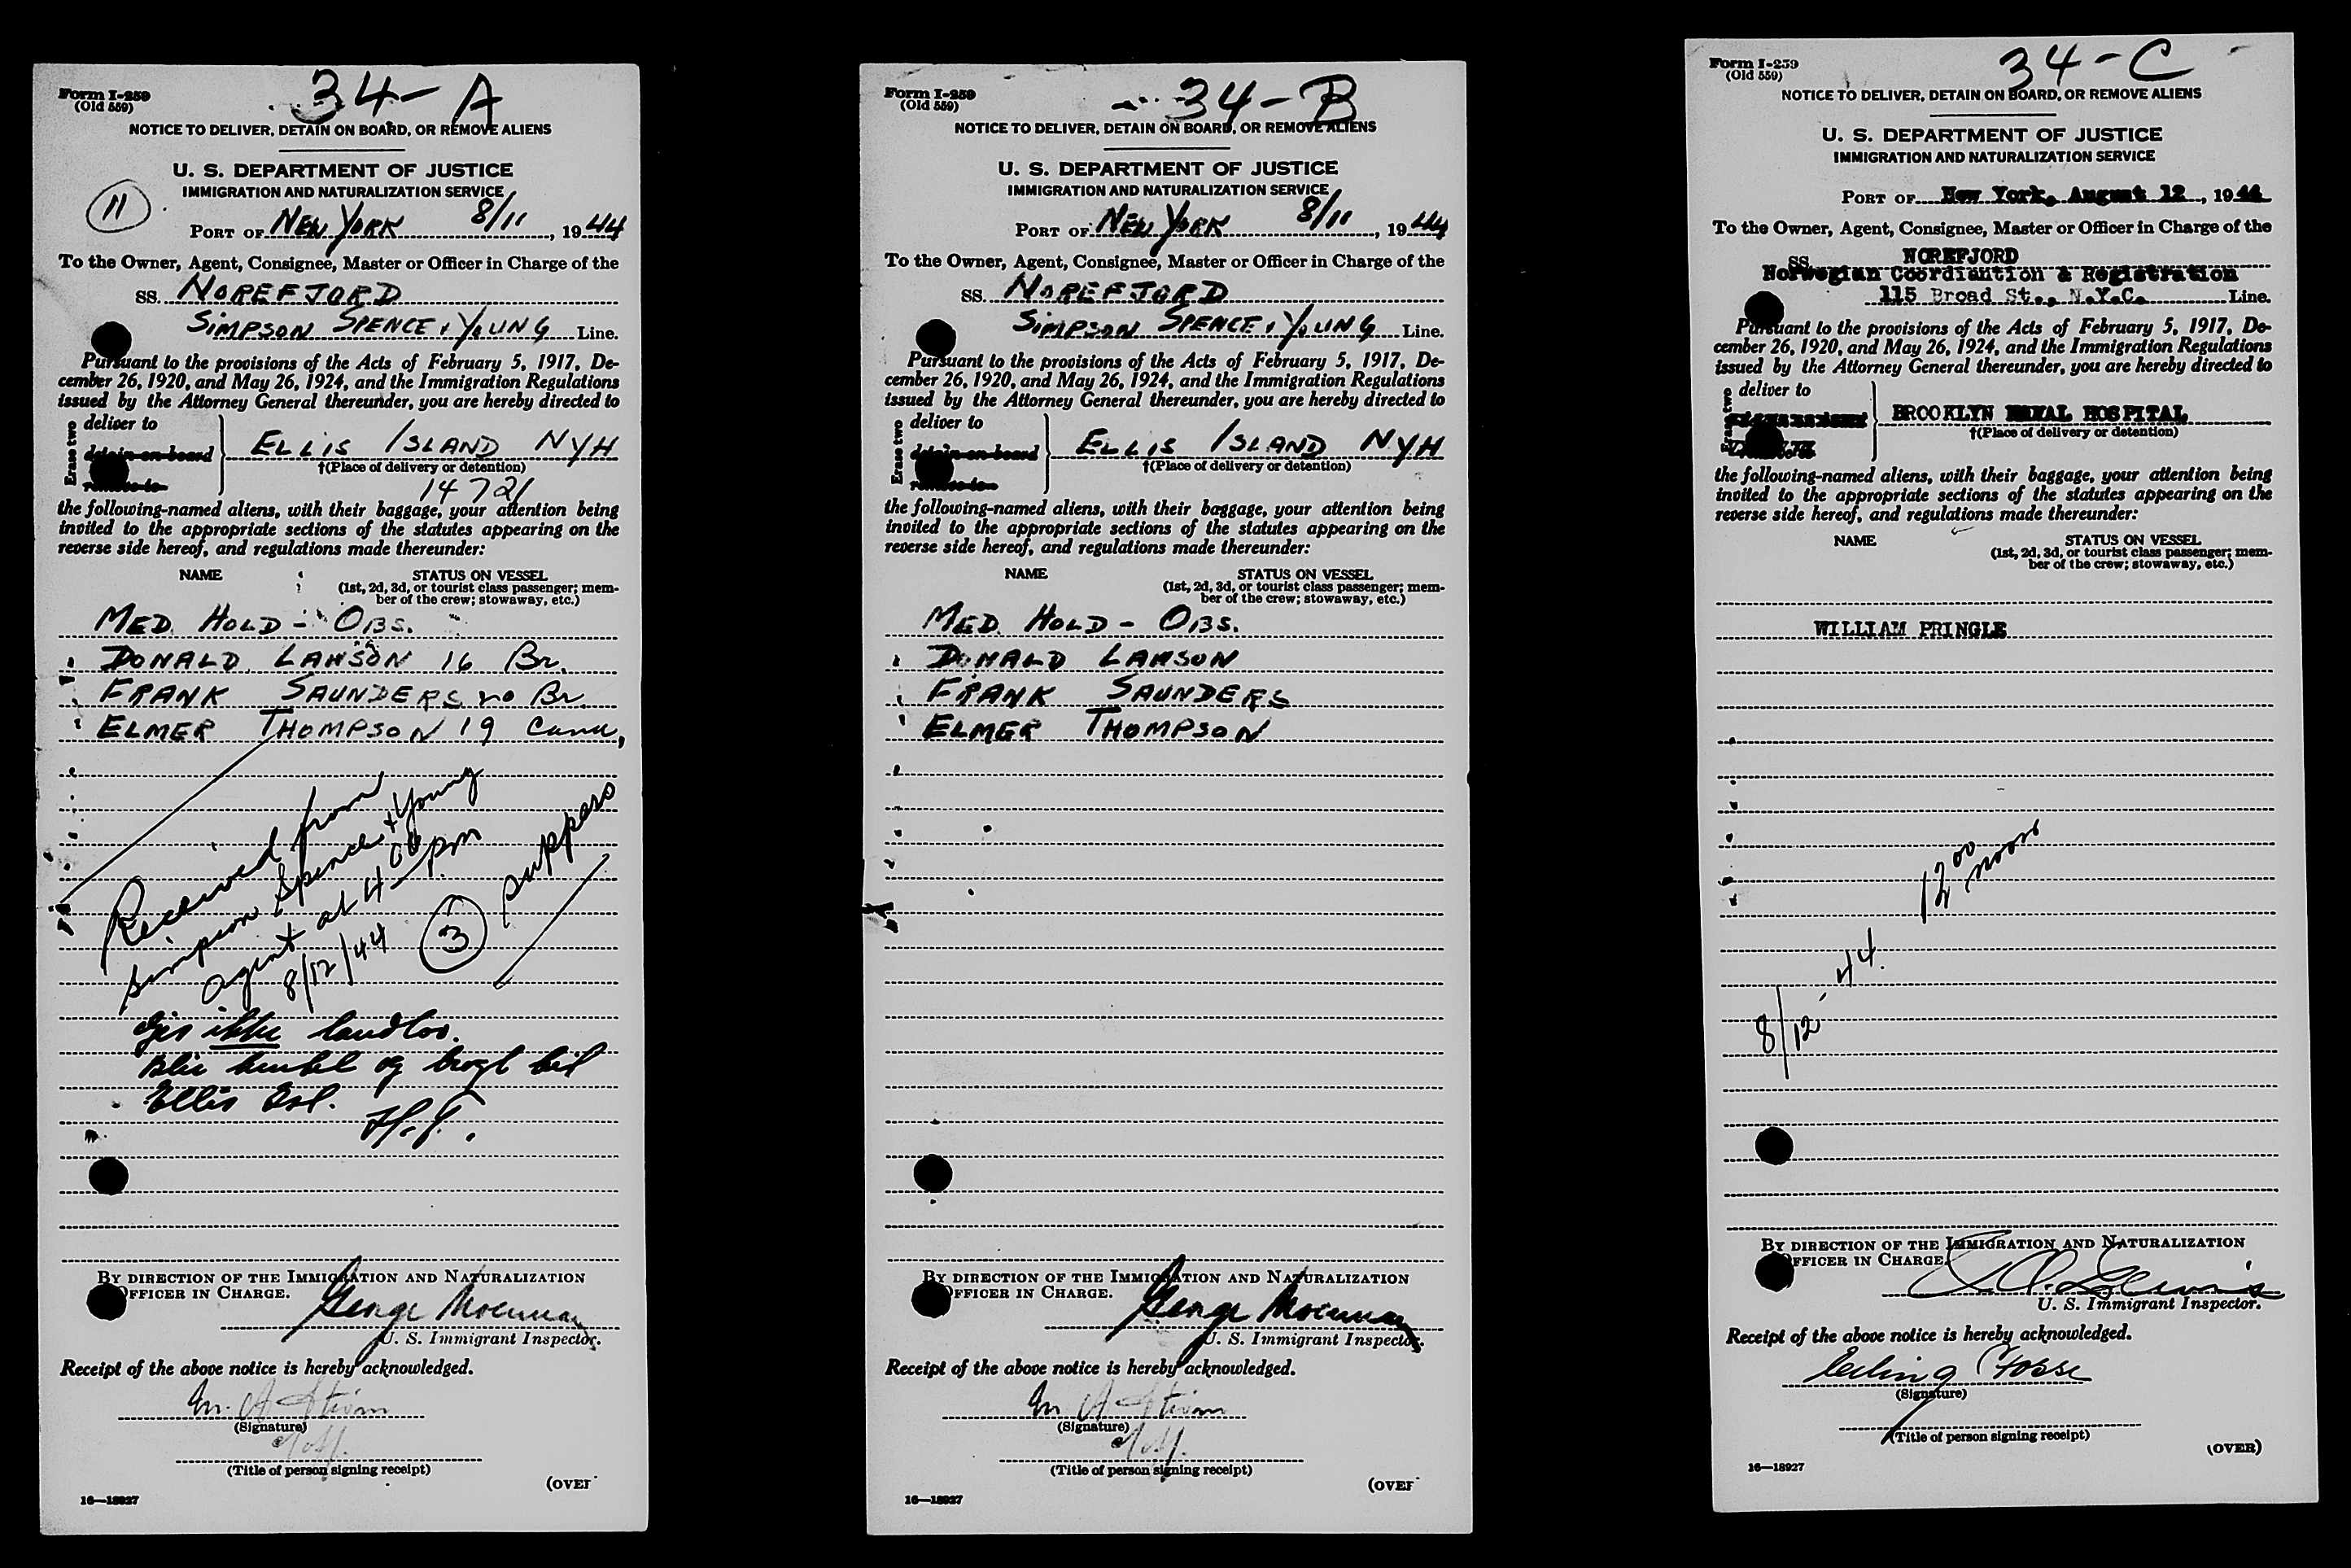 34-A
Form I-259
(Old 559)
NOTICE TO DELIVER, DETAIN ON BOARD, OR REMOVE ALIENS
U. S. DEPARTMENT OF JUSTICE
IMMIGRATION AND NATURALIZATION SERVICE
11
PORT OF NEW YORK 8/11, 1944
To the Owner, Agent, Consignee, Master or Officer in Charge of the
SS. NOREFJORD
SIMPSON SPENCE & YOUNG Line.
Pursuant to the provisions of the Acts of February 5, 1917, De-
cember 26, 1920, and May 26, 1924, and the Immigration Regulations
issued by the Attorney General thereunder, you are hereby directed to
Erase two
deliver to
detain on board
remove to
ELLIS ISLAND NYH
†(Place of delivery or detention)
14721
the following-named aliens, with their baggage, your attention being
invited to the appropriate sections of the statutes appearing on the
reverse side hereof, and regulations made thereunder:
NAME STATUS ON VESSEL
(1st, 2d, 3d, or tourist class passenger; mem-
ber of the crew; stowaway, etc.)
MED. HOLD - OBS.
DONALD LAWSON 16 Br.
FRANK SAUNDERS 20 Br.
ELMER THOMPSON 19 Cana,
Received from
Simpson Spence & Young
agent at 4 00 pm
8/12/44
3 suppers
Gis ikke landlov.
Blir hentet og bragt til
Ellis Isl.
BY DIRECTION OF THE IMMIGRATION AND NATURALIZATION
OFFICER IN CHARGE.
George
U. S. Immigrant Inspector.
Receipt of the above notice is hereby acknowledged.
(Signature)
(Title of person signing receipt)
(OVER
16—18927
34-B
Form I-259
(Old 559)
NOTICE TO DELIVER, DETAIN ON BOARD, OR REMOVE ALIENS
U. S. DEPARTMENT OF JUSTICE
IMMIGRATION AND NATURALIZATION SERVICE
PORT OF NEW YORK 8/11, 1944
To the Owner, Agent, Consignee, Master or Officer in Charge of the
SS. NOREFJORD
SIMPSON SPENCE & YOUNG Line.
Pursuant to the provisions of the Acts of February 5, 1917, De-
cember 26, 1920, and May 26, 1924, and the Immigration Regulations
issued by the Attorney General thereunder, you are hereby directed to
Erase two
deliver to
detain on board
remove to
ELLIS ISLAND NYH
†(Place of delivery or detention)
the following-named aliens, with their baggage, your attention being
invited to the appropriate sections of the statutes appearing on the
reverse side hereof, and regulations made thereunder:
NAME STATUS ON VESSEL
(1st, 2d, 3d, or tourist class passenger; mem-
ber of the crew; stowaway, etc.)
MED. HOLD - OBS.
DONALD LAWSON
FRANK SAUNDERS
ELMER THOMPSON
BY DIRECTION OF THE IMMIGRATION AND NATURALIZATION
OFFICER IN CHARGE.
George
U. S. Immigrant Inspector.
Receipt of the above notice is hereby acknowledged.
(Signature)
(Title of person signing receipt)
(OVER
16—18927
34-C
Form I-259
(Old 559)
NOTICE TO DELIVER, DETAIN ON BOARD, OR REMOVE ALIENS
U. S. DEPARTMENT OF JUSTICE
IMMIGRATION AND NATURALIZATION SERVICE
PORT OF New York, August 12, 1944
To the Owner, Agent, Consignee, Master or Officer in Charge of the
SS. NOREFJORD
Norwegian Coordiantion & Registration
115 Broad St., N.Y.C. Line.
Pursuant to the provisions of the Acts of February 5, 1917, De-
cember 26, 1920, and May 26, 1924, and the Immigration Regulations
issued by the Attorney General thereunder, you are hereby directed to
Erase two
deliver to
BROOKLYN NAVAL HOSPITAL
†(Place of delivery or detention)
the following-named aliens, with their baggage, your attention being
invited to the appropriate sections of the statutes appearing on the
reverse side hereof, and regulations made thereunder:
NAME STATUS ON VESSEL
(1st, 2d, 3d, or tourist class passenger; mem-
ber of the crew; stowaway, etc.)
WILLIAM PRINGLE
12 00 noon
8/12, 44.
BY DIRECTION OF THE IMMIGRATION AND NATURALIZATION
OFFICER IN CHARGE.
U. S. Immigrant Inspector.
Receipt of the above notice is hereby acknowledged.
Erling Fosse
(Signature)
(Title of person signing receipt)
(OVER)
16—18927